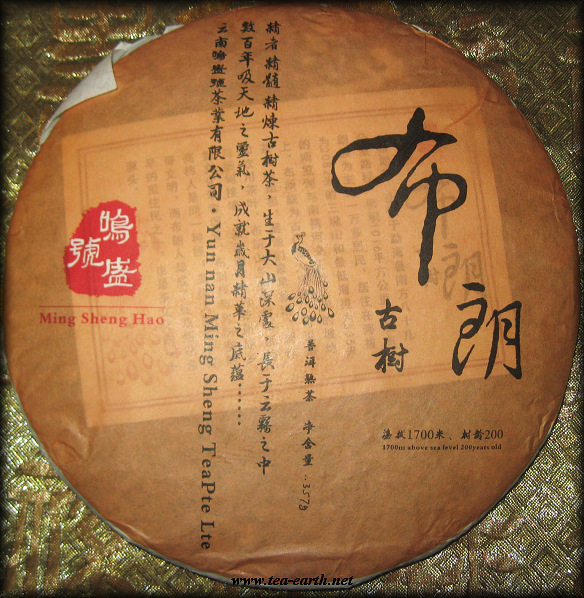 布朗
古樹
海拔1700米、树龄200
1700m above sea level 200years old
普洱熟茶 净含量:357g
精者精髓精煉古樹茶，生于大山深處，長于云霧之中
數百年吸天地之靈氣，成就歲月精華之底蘊……
云南鳴盛號茶業有限公司·Yun nan Ming Sheng TeaPte Lte
鳴盛號
Ming Sheng Hao
www.tea-earth.net